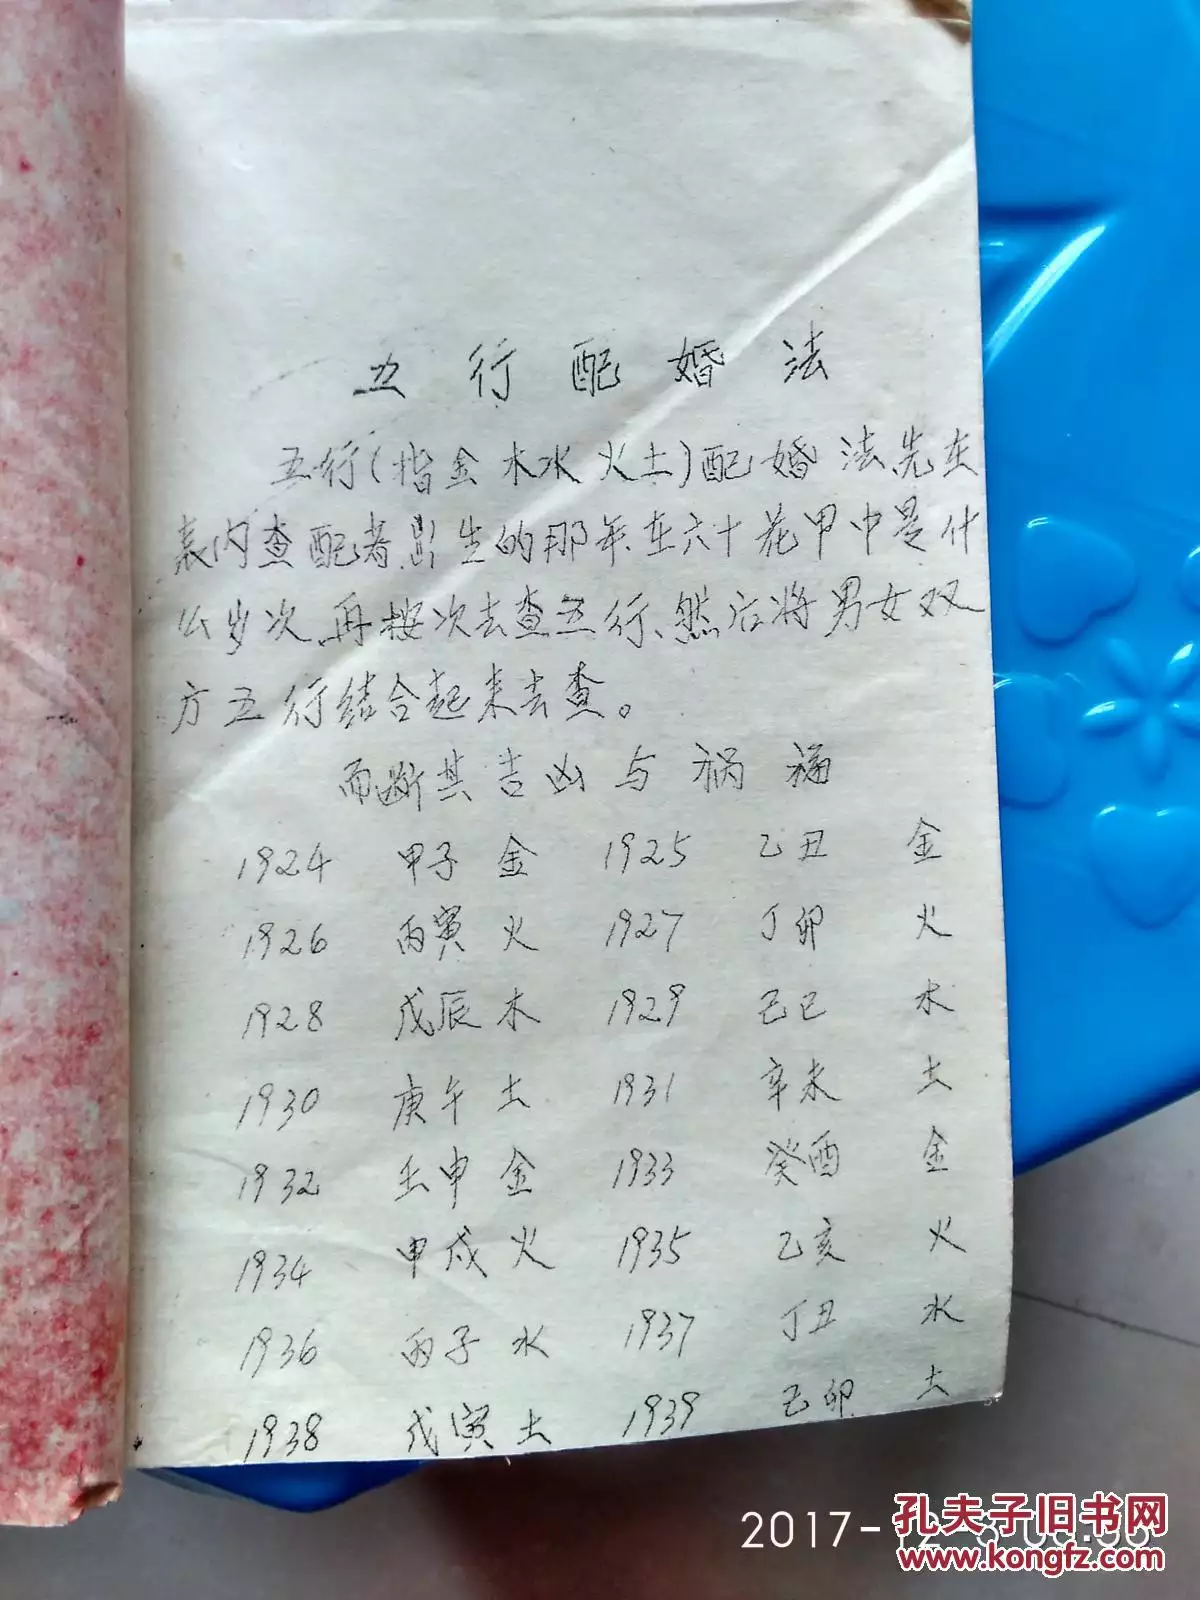 五行配婚法
五行(指金木水火土)配婚法先在
表内查配者出生的那年在六十花甲中是什
么岁次、再按次去查五行、然后将男女双
方五行结合起来去查。
而断其吉凶与祸福
1924 甲子 金 1925 乙丑 金
1926 丙寅 火 1927 丁卯 火
1928 戊辰 木 1929 己巳 木
1930 庚午 土 1931 辛未 土
1932 壬申 金 1933 癸酉 金
1934 甲戌 火 1935 乙亥 火
1936 丙子 水 1937 丁丑 水
1938 戊寅 土 1939 己卯 土
孔夫子旧书网
www.kongfz.com
2017-12